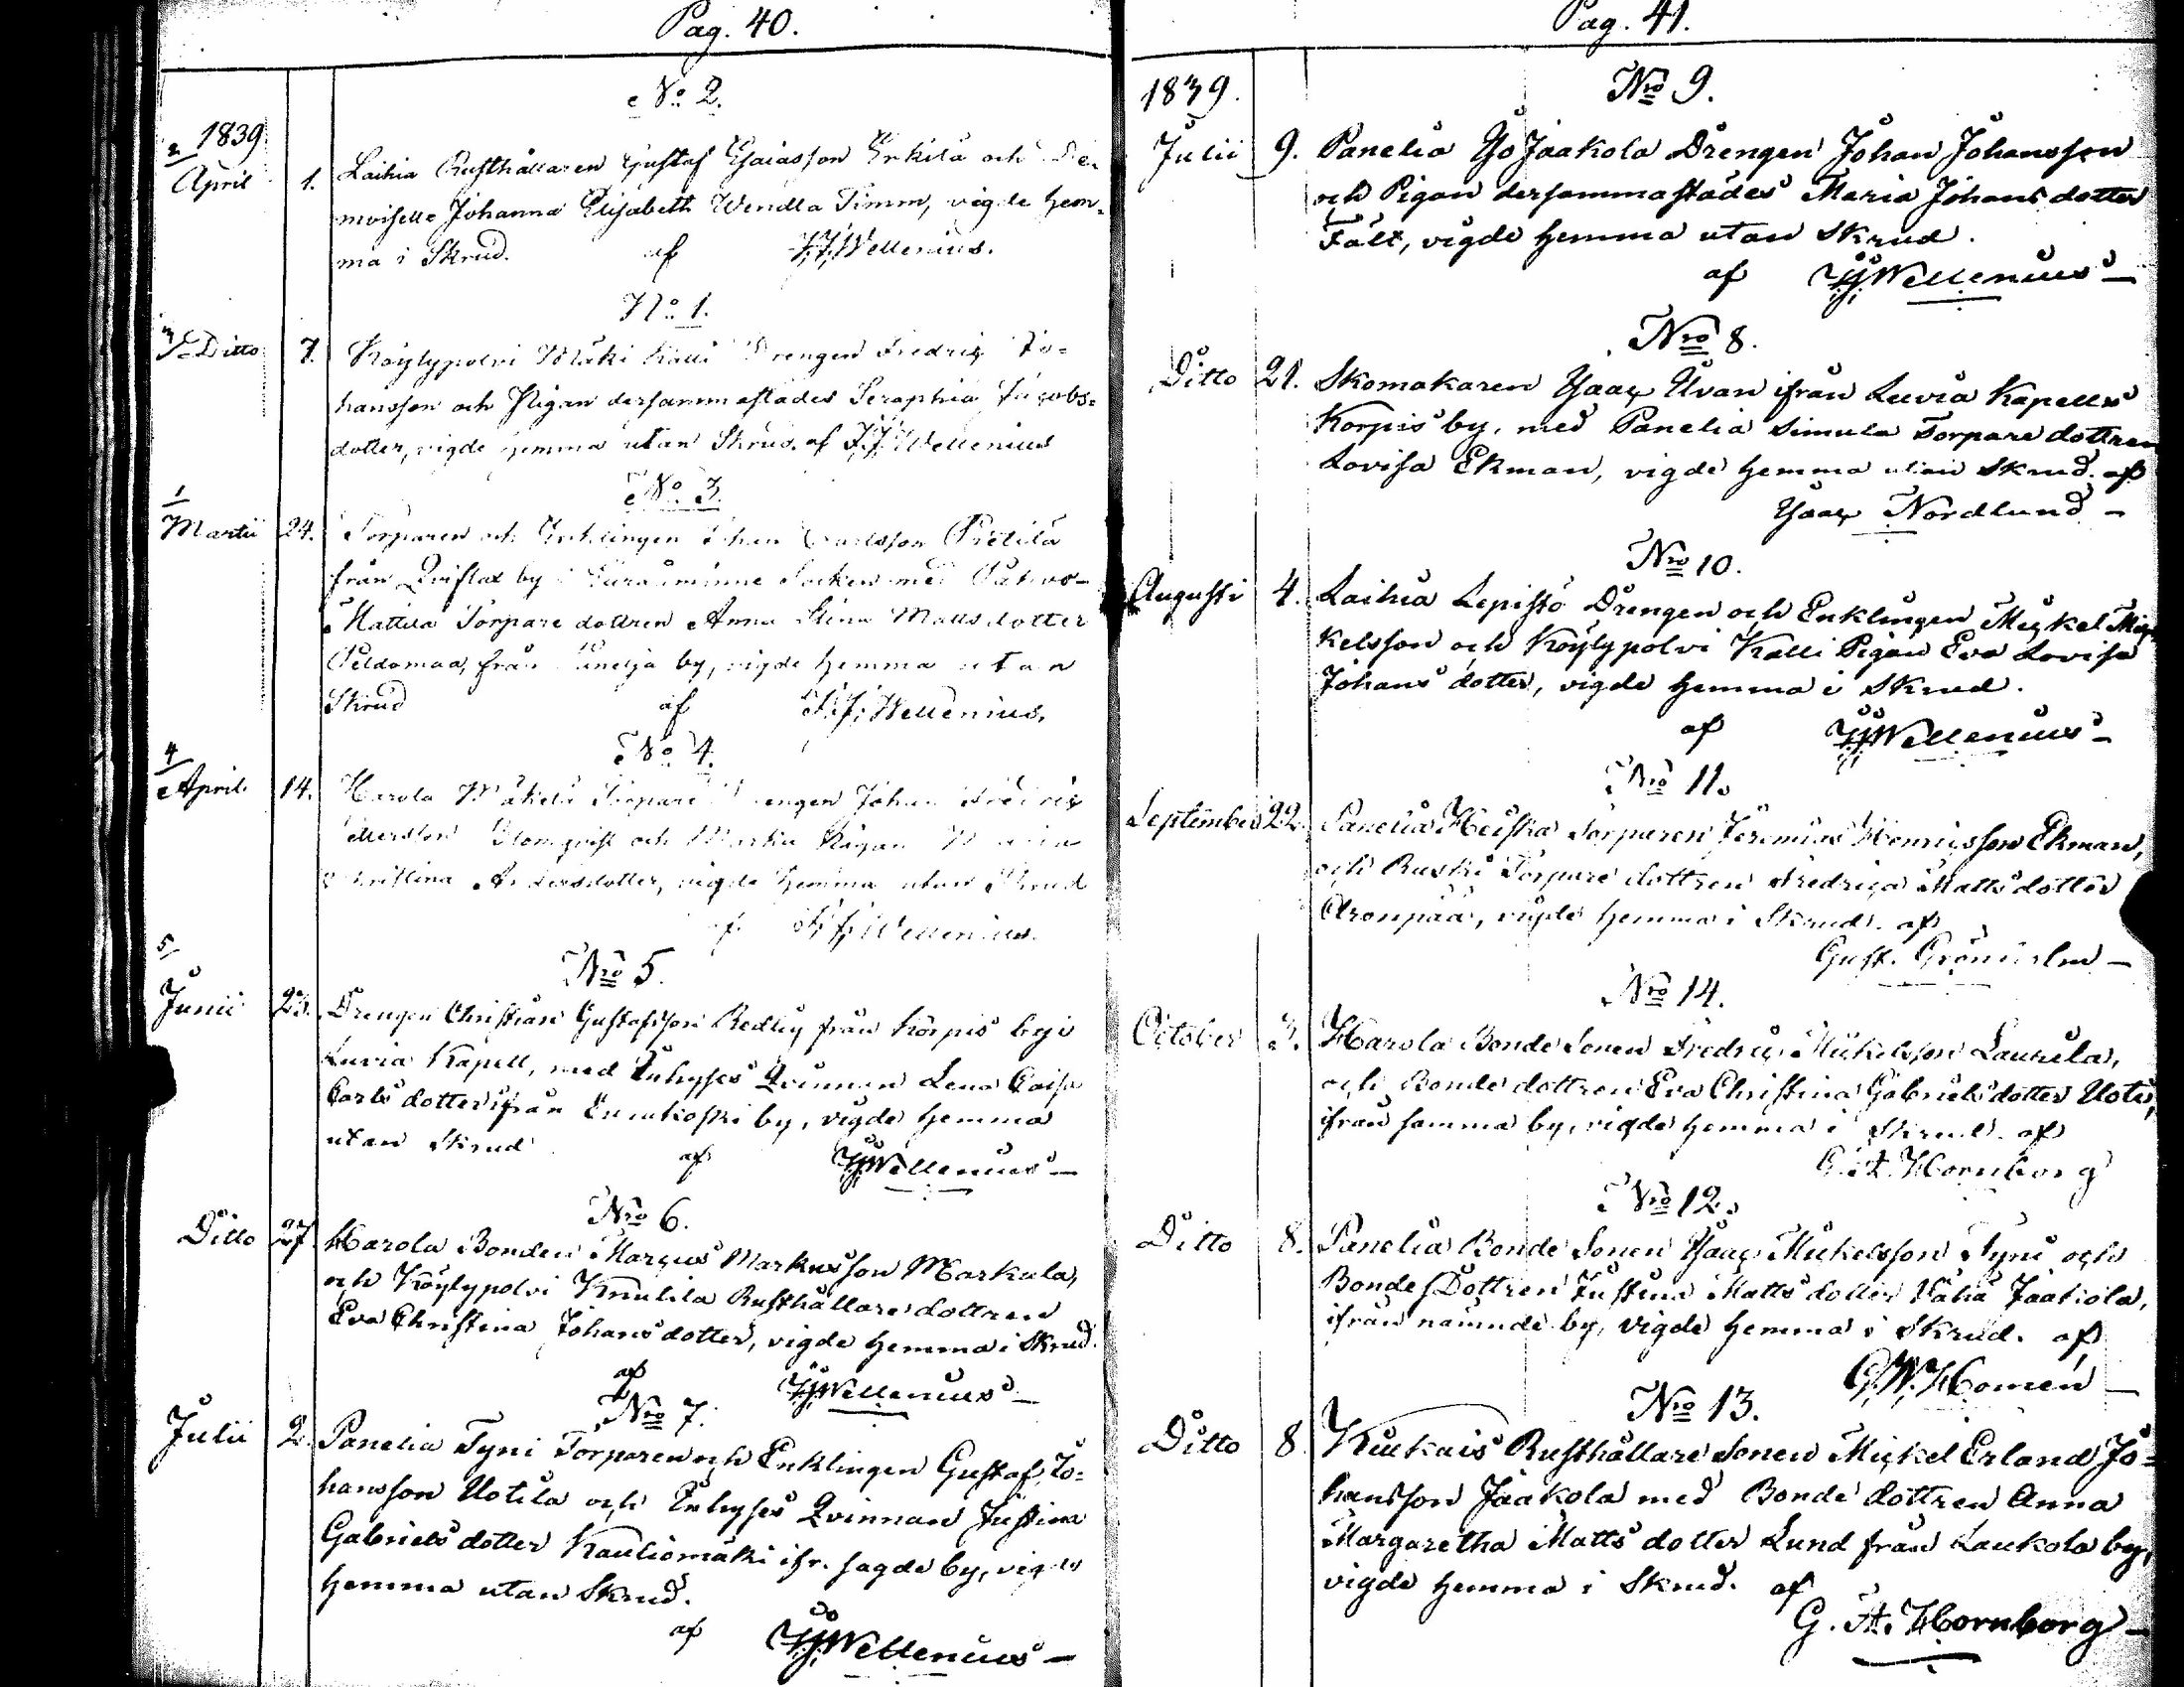 Pag. 40.
No 2.
2 1839
April 1. Laihia Rusthållaren Gustaf Esaiasson Erkilä och De-
moiselle Johanna Elisabeth Wendla Timm, vigde hem-
ma i Skrud. af J.J. Wellenius.
No 1.
3 Ditto 7. Köylypolvi Mäki Kalli Drengen Fredric Jo=
hansson och Pigan dersammastädes Seraphia Jacobs=
dotter, vigde hemma utan Skrud. af J.J. Wellenius
No 3.
1
Martii 24. Torparen och Enklingen Johan Carlsson Prétilä
från by i Euraåminne Socken med
Mattila Torpare dottren Anna Stina Mattsdotter
Peldomaa, från Panelja by, vigde hemma utan
Skrud af J.J. Wellenius.
No 4.
4
April 14. Harola Mäkelä Torpare Drengen Johan Fredric
Blomqvist och Pigan Maria
Christina Andersdotter, vigde hemma utan Skrud
af J.J. Wellenius.
5
Nro 5.
Junii 23. Drengen Christian Gustafsson Redlig från Korpis by i
Luvia Kapell, med Inhyses Qvinnan Lena Caisa
Carls dotter ifrån Eurakoski by, vigde hemma
utan Skrud af J.J. Wellenius —
Nro 6.
Ditto 27. Harola Bonden Marcus Markusson Markula,
och Köylypolvi Knulila Rusthållare dottren
Eva Christina Johans dotter, vigde hemma i Skrud.
af J.J. Wellenius —
Nro 7.
Julii 2. Panelia Tyni Torparen och Enklingen Gustaf Jo=
hansson Uotila och Inhyses Qvinnan Justina
Gabriels dotter Kauliomäki ifr. sagde by, vigde
hemma utan Skrud.
af J.J. Wellenius —
Pag. 41.
1839.
Nro 9.
Julii 9. Panelia Iso Jaakola Drengen Johan Johansson
och Pigan dersammastädes Maria Johans dotter
Fält, vigde hemma utan Skrud.
af J.J. Wellenius —
Nro 8.
Ditto 21. Skomakaren Isaac Uvan ifrån Luvia Kapells
Korpis by, med Panelia Simula Torpare dottren
Lovisa Ekman, vigde hemma utan Skrud. af
Isaac Nordlund —
Nro 10.
Augusti 4. Laihia Lepistö Drengen och Enklingen Mickel Mic
kelsson och Köylypolvi Kalli Pigan Eva Lovisa
Johans dotter, vigde hemma i Skrud.
af J.J. Wellenius —
Nro 11.
September 22. Panelia Heiska Torparen Jeremias Henricsson Ekman,
och Ruski Torpare dottren Fredrica Matts dotter
Aronpää, vigde hemma i Skrud. af
Gust. Grönholm —
Nro 14.
October 3. Harola Bonde Sonen Fredric Mickelsson Laurila,
och Bonde dottren Eva Christina Gabriels dotter Uoti,
ifrån samma by, vigde hemma i Skrud. af
G. A. Hornborg
Nro 12.
Ditto 8. Panelia Bonde Sonen Isaac Mickelsson Tyni och
Bonde Dottren Justina Matts dotter Vähä Jaakola,
ifrån nämnde by, vigde hemma i Skrud. af
G. W. Homén —
Nro 13.
Ditto 8. Kiukais Rusthållare Sonen Mickel Erland Jo=
hansson Jaakola med Bonde dottren Anna
Margaretha Matts dotter Lund från Laukola by,
vigde hemma i Skrud. af
G. A. Hornborg —